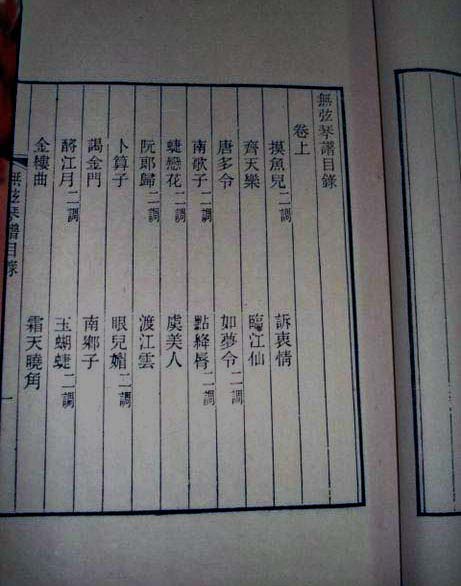 無弦琴譜目錄
卷上
摸魚兒二調 訴衷情
齊天樂 臨江仙
唐多令 如夢令二調
南歌子二調 點絳脣二調
蜨戀花二調 虞美人
阮郎歸二調 渡江雲
卜算子 眼兒媚二調
謁金門二調 南鄉子
酹江月二調 玉蝴蜨二調
金縷曲 霜天曉角
無弦琴譜目錄 一